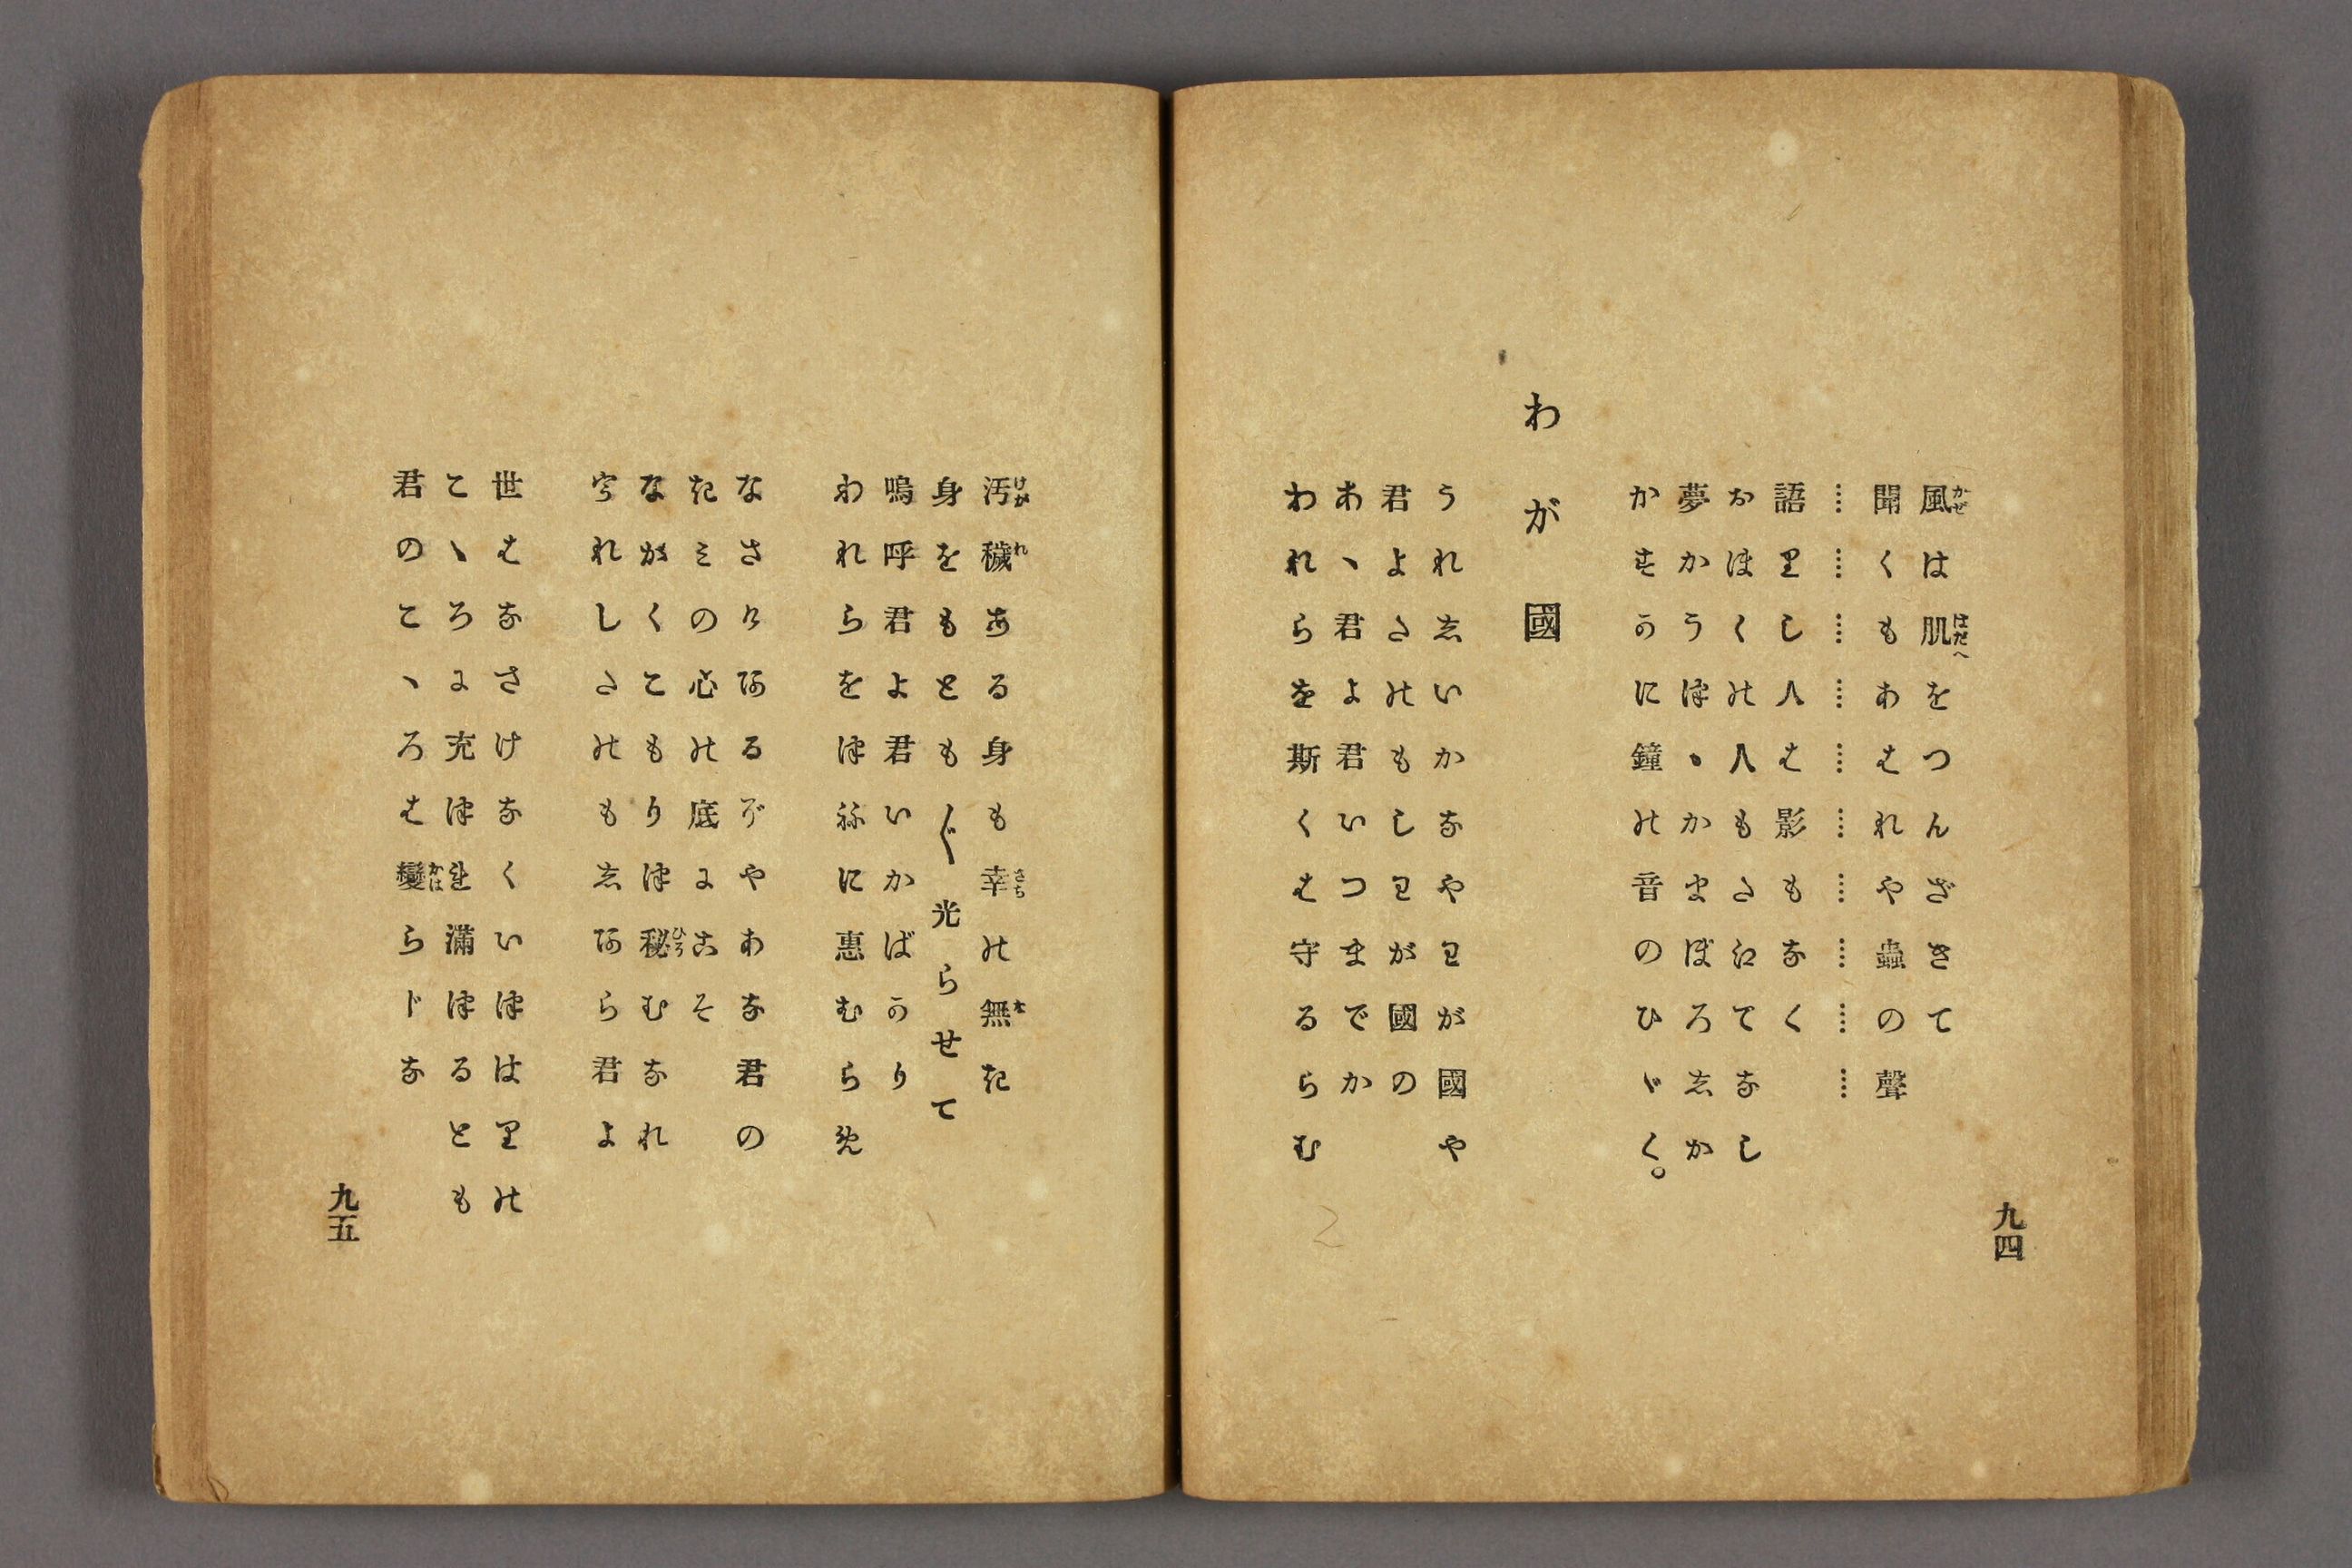 風は肌をつんざきて
聞くもあはれや蟲の聲
………………………………………
語りし人は影もなく
おぼくの人もさめてなし
夢かうつゝかまぼろしか
かすかに鐘の音のひゞく。
わが國
うれしいかなやわが國や
君よさのもしわが國の
あゝ君よ君いつまでか
われらを斯くは守るらむ
九四
汚穢ある身も幸の無き
身をももとも〴〵光らせて
嗚呼君よ君いかばかり
われらをつねに惠むらん
なさけあるぞやわな君の
きみの心の底にこそ
ながくこもりつ秘むなれ
うれしさのもしあら君よ
世はなさけなくいつはりの
こゝろに充つれ滿つるとも
君のこゝろは變らじな
九五